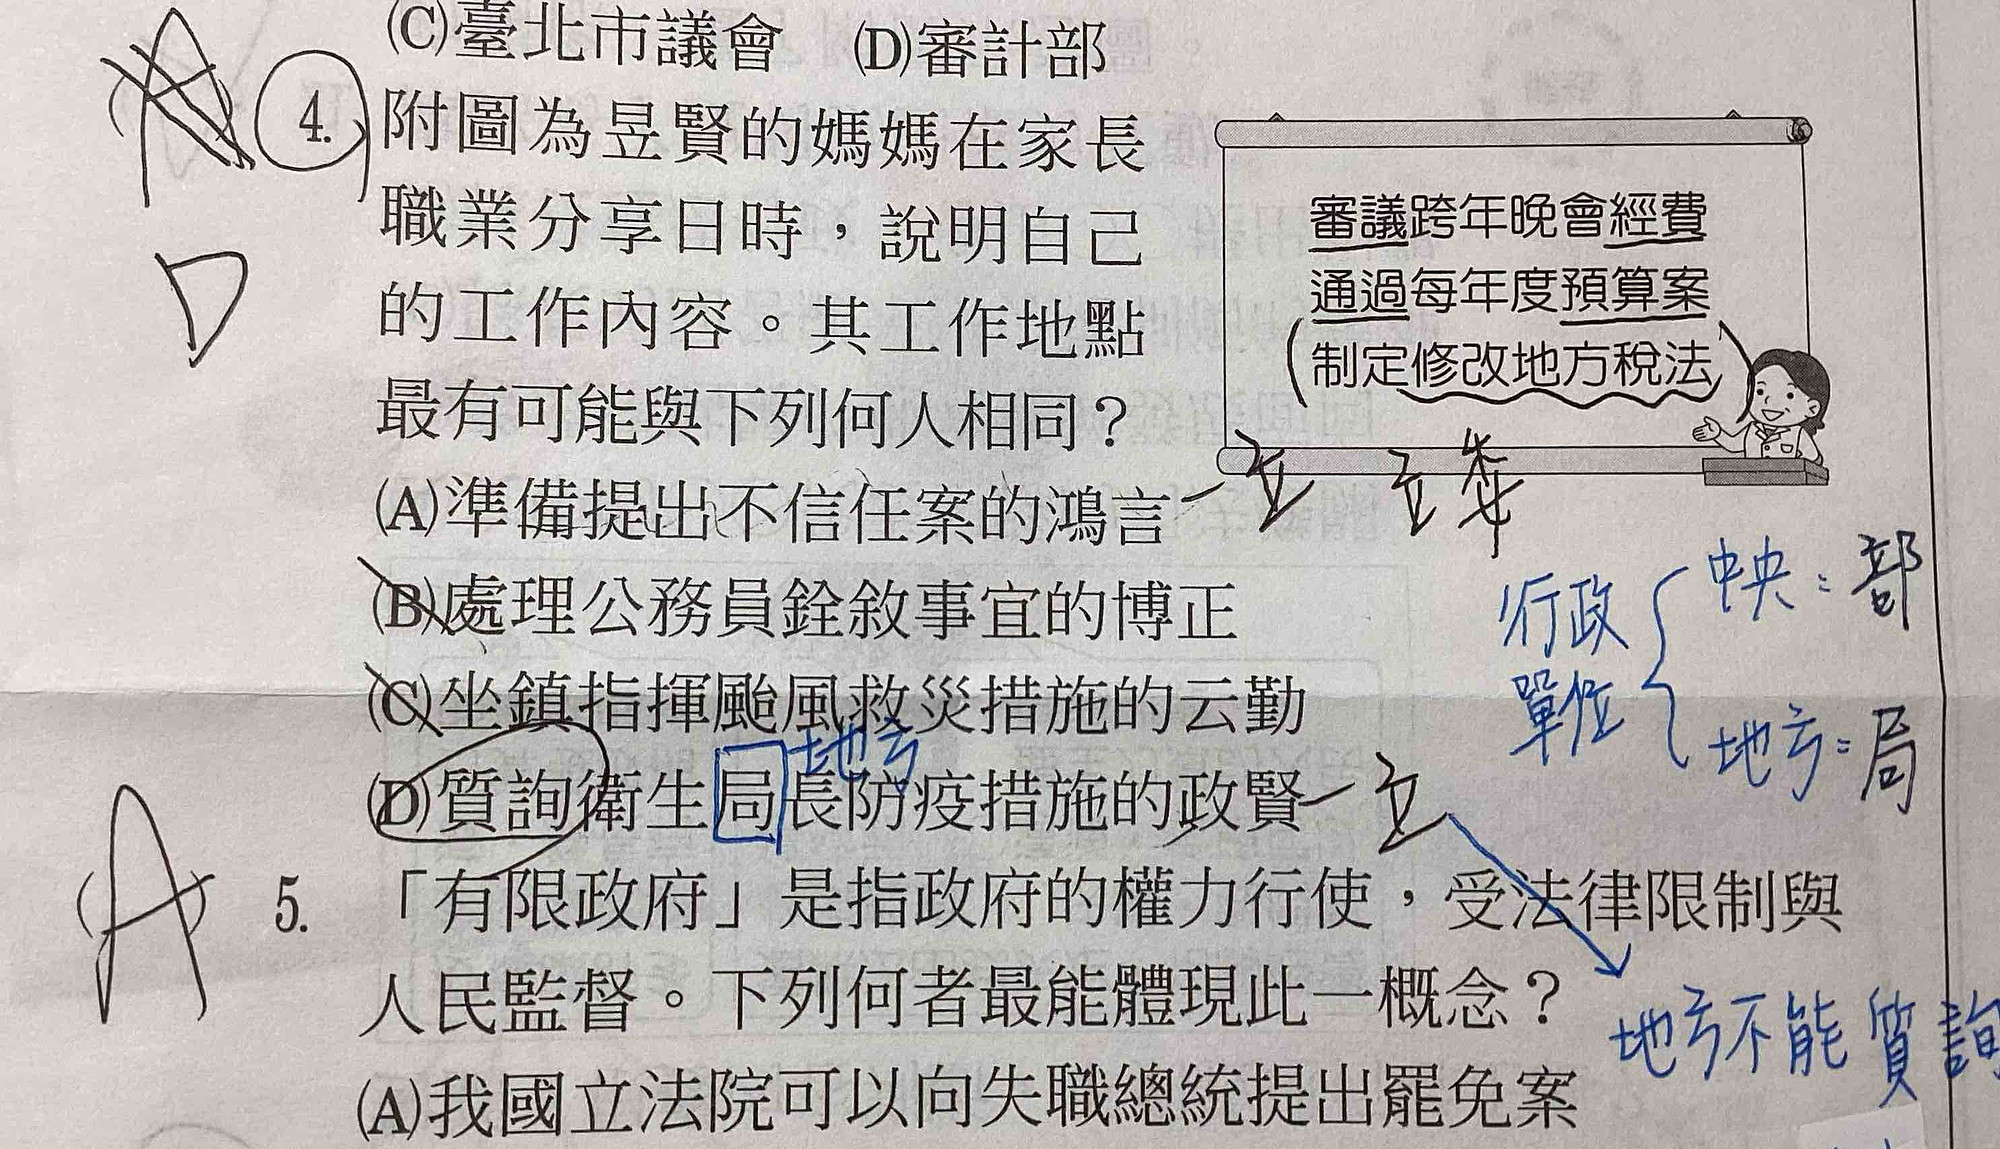 (C)臺北市議會 (D)審計部
A
4. 附圖為昱賢的媽媽在家長
職業分享日時，說明自己
的工作內容。其工作地點
最有可能與下列何人相同？
D
審議跨年晚會經費
通過每年度預算案
制定修改地方稅法
(A)準備提出不信任案的鴻言 立
(B)處理公務員銓敘事宜的博正
(C)坐鎮指揮颱風救災措施的云勤
地方
(D)質詢衛生局長防疫措施的政賢 立
行政
單位
中央：部
地方：局
地方不能質詢
A
5. 「有限政府」是指政府的權力行使，受法律限制與
人民監督。下列何者最能體現此一概念？
(A)我國立法院可以向失職總統提出罷免案